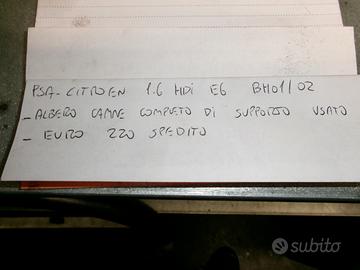 PSA - CITROEN 1.6 HDi E6 BH01/02
- ALBERO CAMME COMPLETO DI SUPPORTO USATO
- EURO 220 SPEDITO
subito